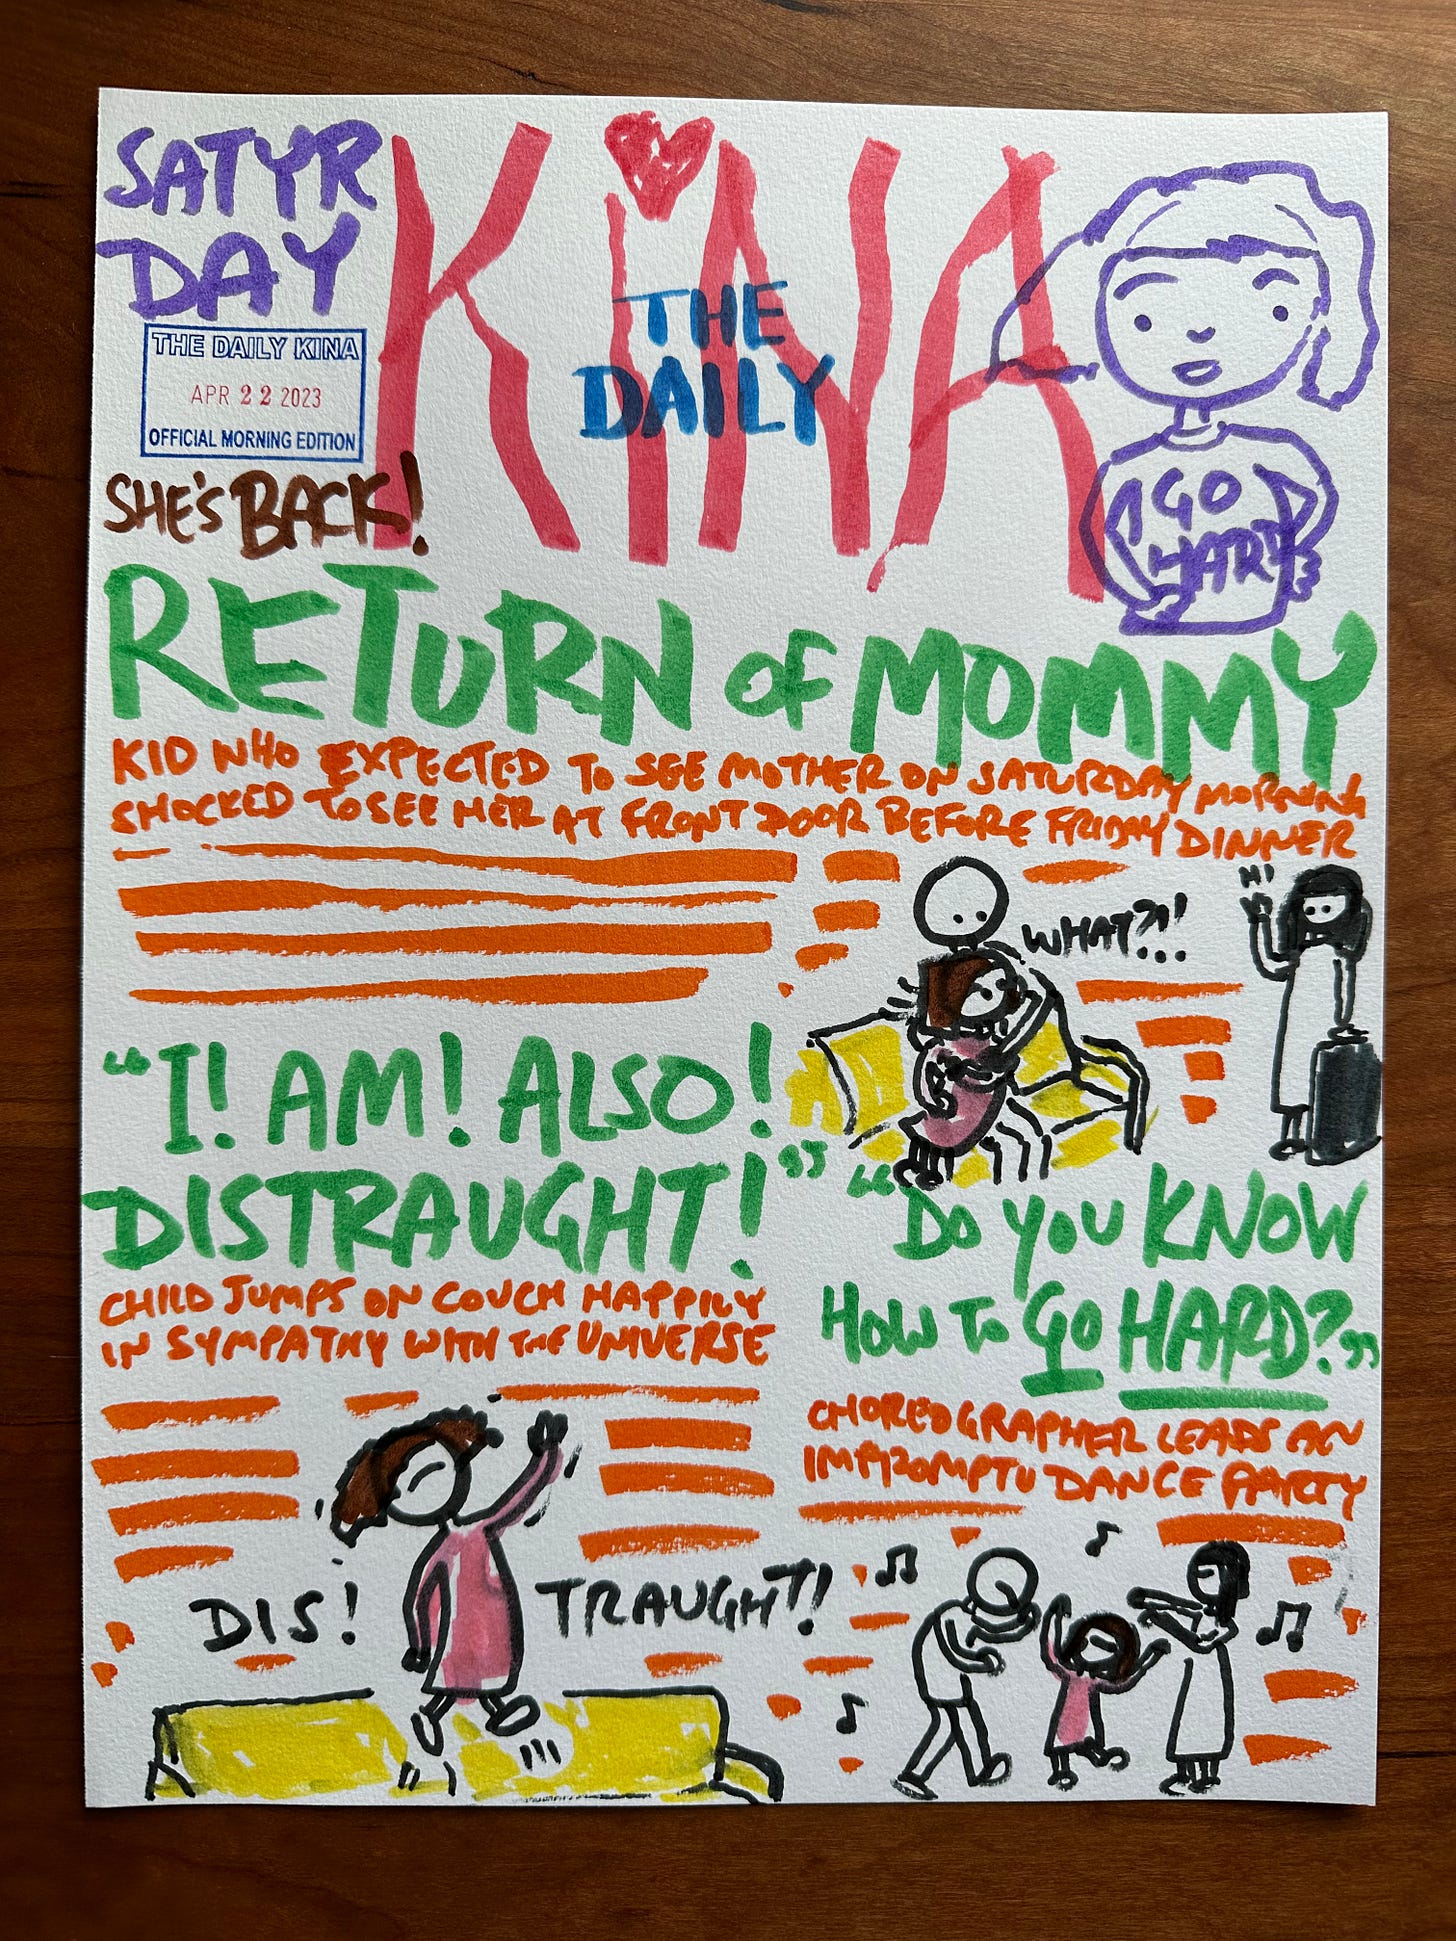 SATYR
DAY
KINA
THE
DAILY
THE DAILY KINA
APR 22 2023
OFFICIAL MORNING EDITION
I GO
HARD
SHE'S BACK!
RETURN OF MOMMY
KID WHO EXPECTED TO SEE MOTHER ON SATURDAY MORNING
SHOCKED TO SEE HER AT FRONT DOOR BEFORE FRIDAY DINNER
WHAT?!!
HI
"I! AM! ALSO!
DISTRAUGHT!"
CHILD JUMPS ON COUCH HAPPILY
IN SYMPATHY WITH THE UNIVERSE
DIS!
TRAUGHT!
"DO YOU KNOW
HOW TO GO HARD?"
CHOREOGRAPHER LEADS AN
IMPROMPTU DANCE PARTY